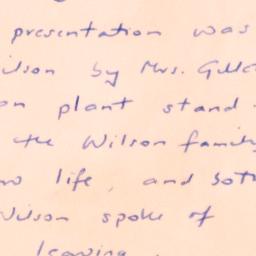 presentation was
ilson by Mrs. 
on plant stand
the Wilson family
life, and both
Wilson spoke of
leaving